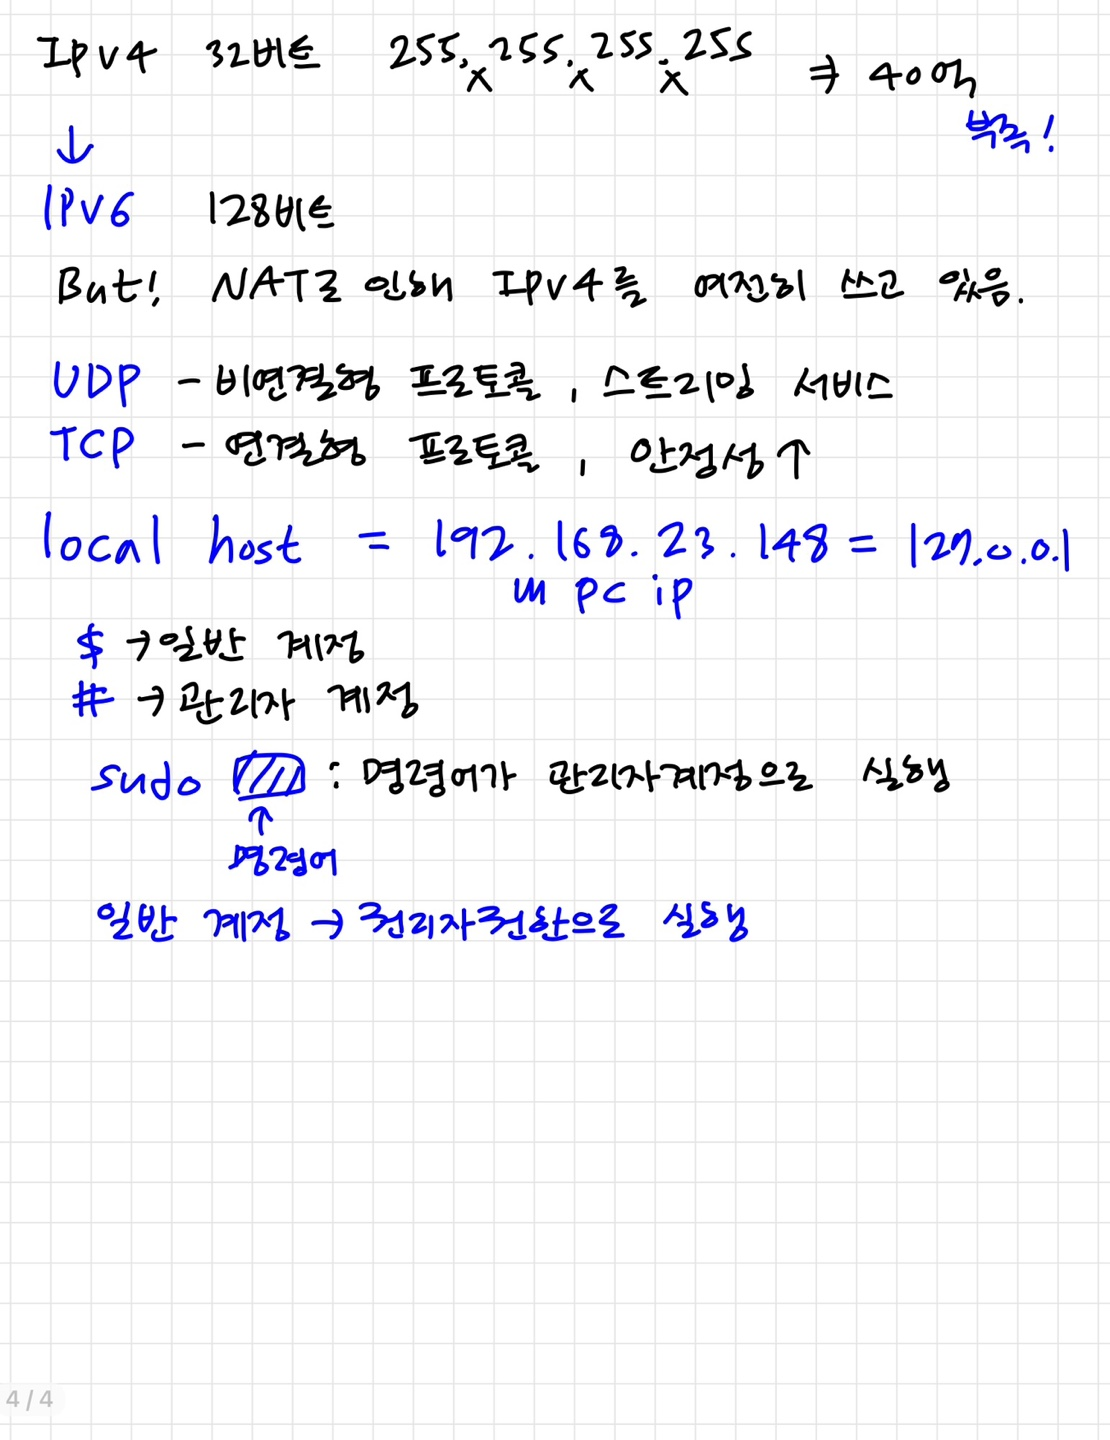 IPv4 32비트 255.255.255.255 ⇒ 40억
x x x
부족!
↓
IPV6 128비트
But! NAT로 인해 IPv4를 여전히 쓰고 있음.
UDP - 비연결형 프로토콜, 스트리밍 서비스
TCP - 연결형 프로토콜, 안정성↑
local host = 192.168.23.148 = 127.0.0.1
내 pc ip
$ → 일반 계정
# → 관리자 계정
sudo : 명령어가 관리자계정으로 실행
↑
명령어
일반 계정 → 관리자권한으로 실행
4/4